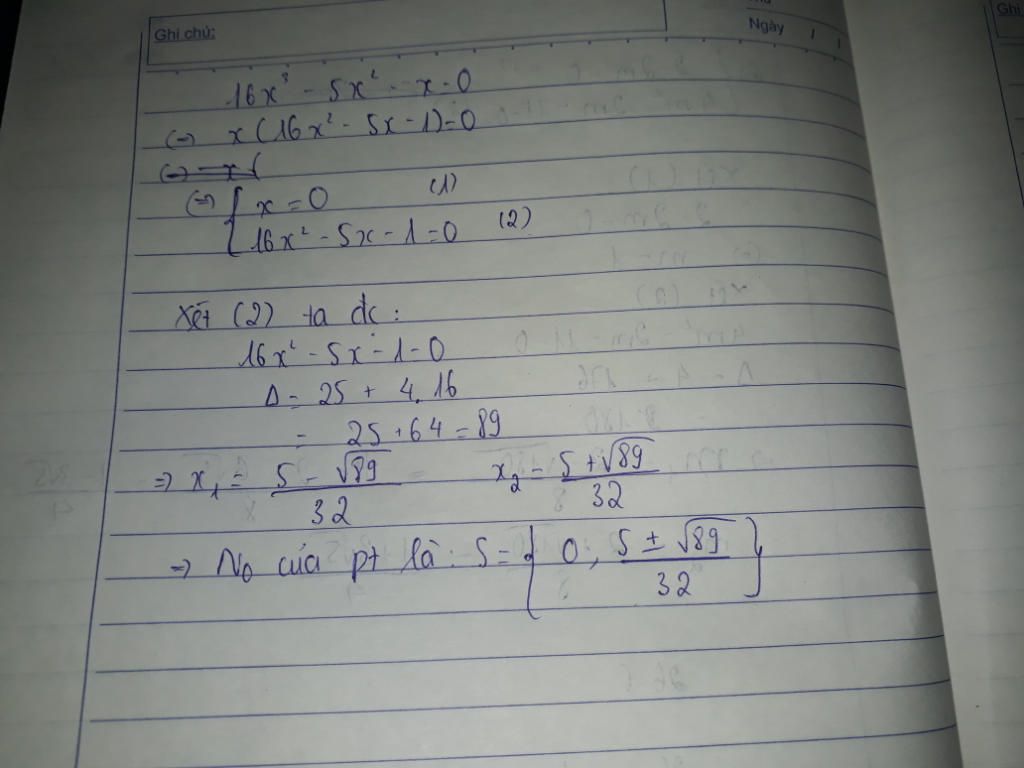 Ghi chú:
Ngày / /
Ghi
16x³ - 5x² - x = 0
(=) x(16x² - 5x - 1) = 0
(=) x(
(=) { x = 0 (1)
16x² - 5x - 1 = 0 (2)
Xét (2) ta đc:
16x² - 5x - 1 = 0
Δ = 25 + 4.16
= 25 + 64 = 89
=> x₁ = (5 - √89)/32 x₂ = (5 + √89)/32
=> No của pt là: S = { 0; (5 ± √89)/32 }